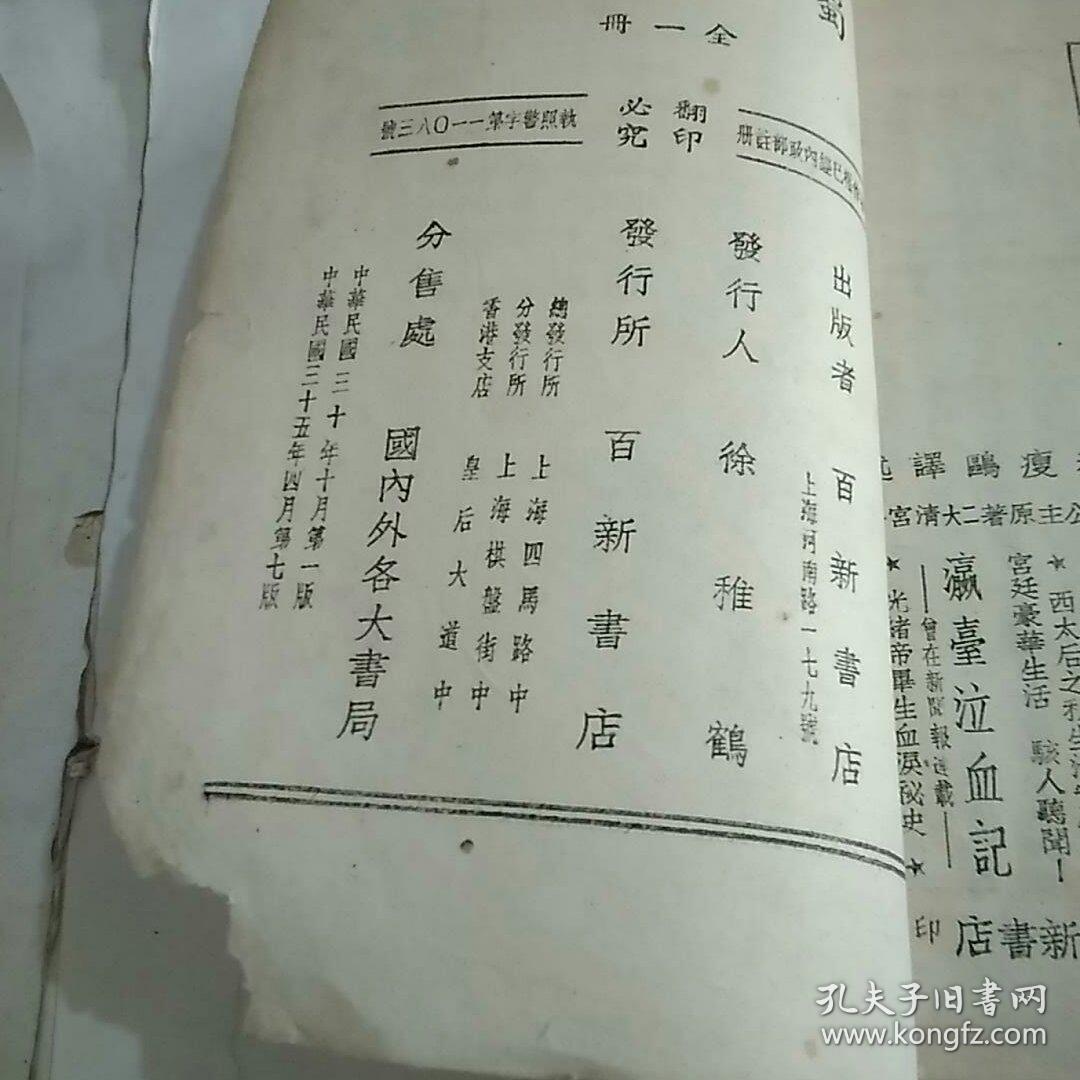 蜀
全一冊
翻印必究
內政部註册
執照警字第一一〇八三號
出版者 百新書店
上海河南路一七九號
發行人 徐稚鶴
發行所 百新書店
總發行所 上海四馬路中
分發行所 上海棋盤街中
香港支店 皇后大道中
分售處 國內外各大書局
中華民國三十年十月第一版
中華民國三十五年四月第七版
瘦鷗譯
公主原著二大清宮
西太后之私生活
宮廷豪華生活 駭人聽聞！
瀛臺泣血記
——曾在新聞報連載——
★光緒帝畢生血淚秘史★
新書店印
孔夫子旧书网
www.kongfz.com